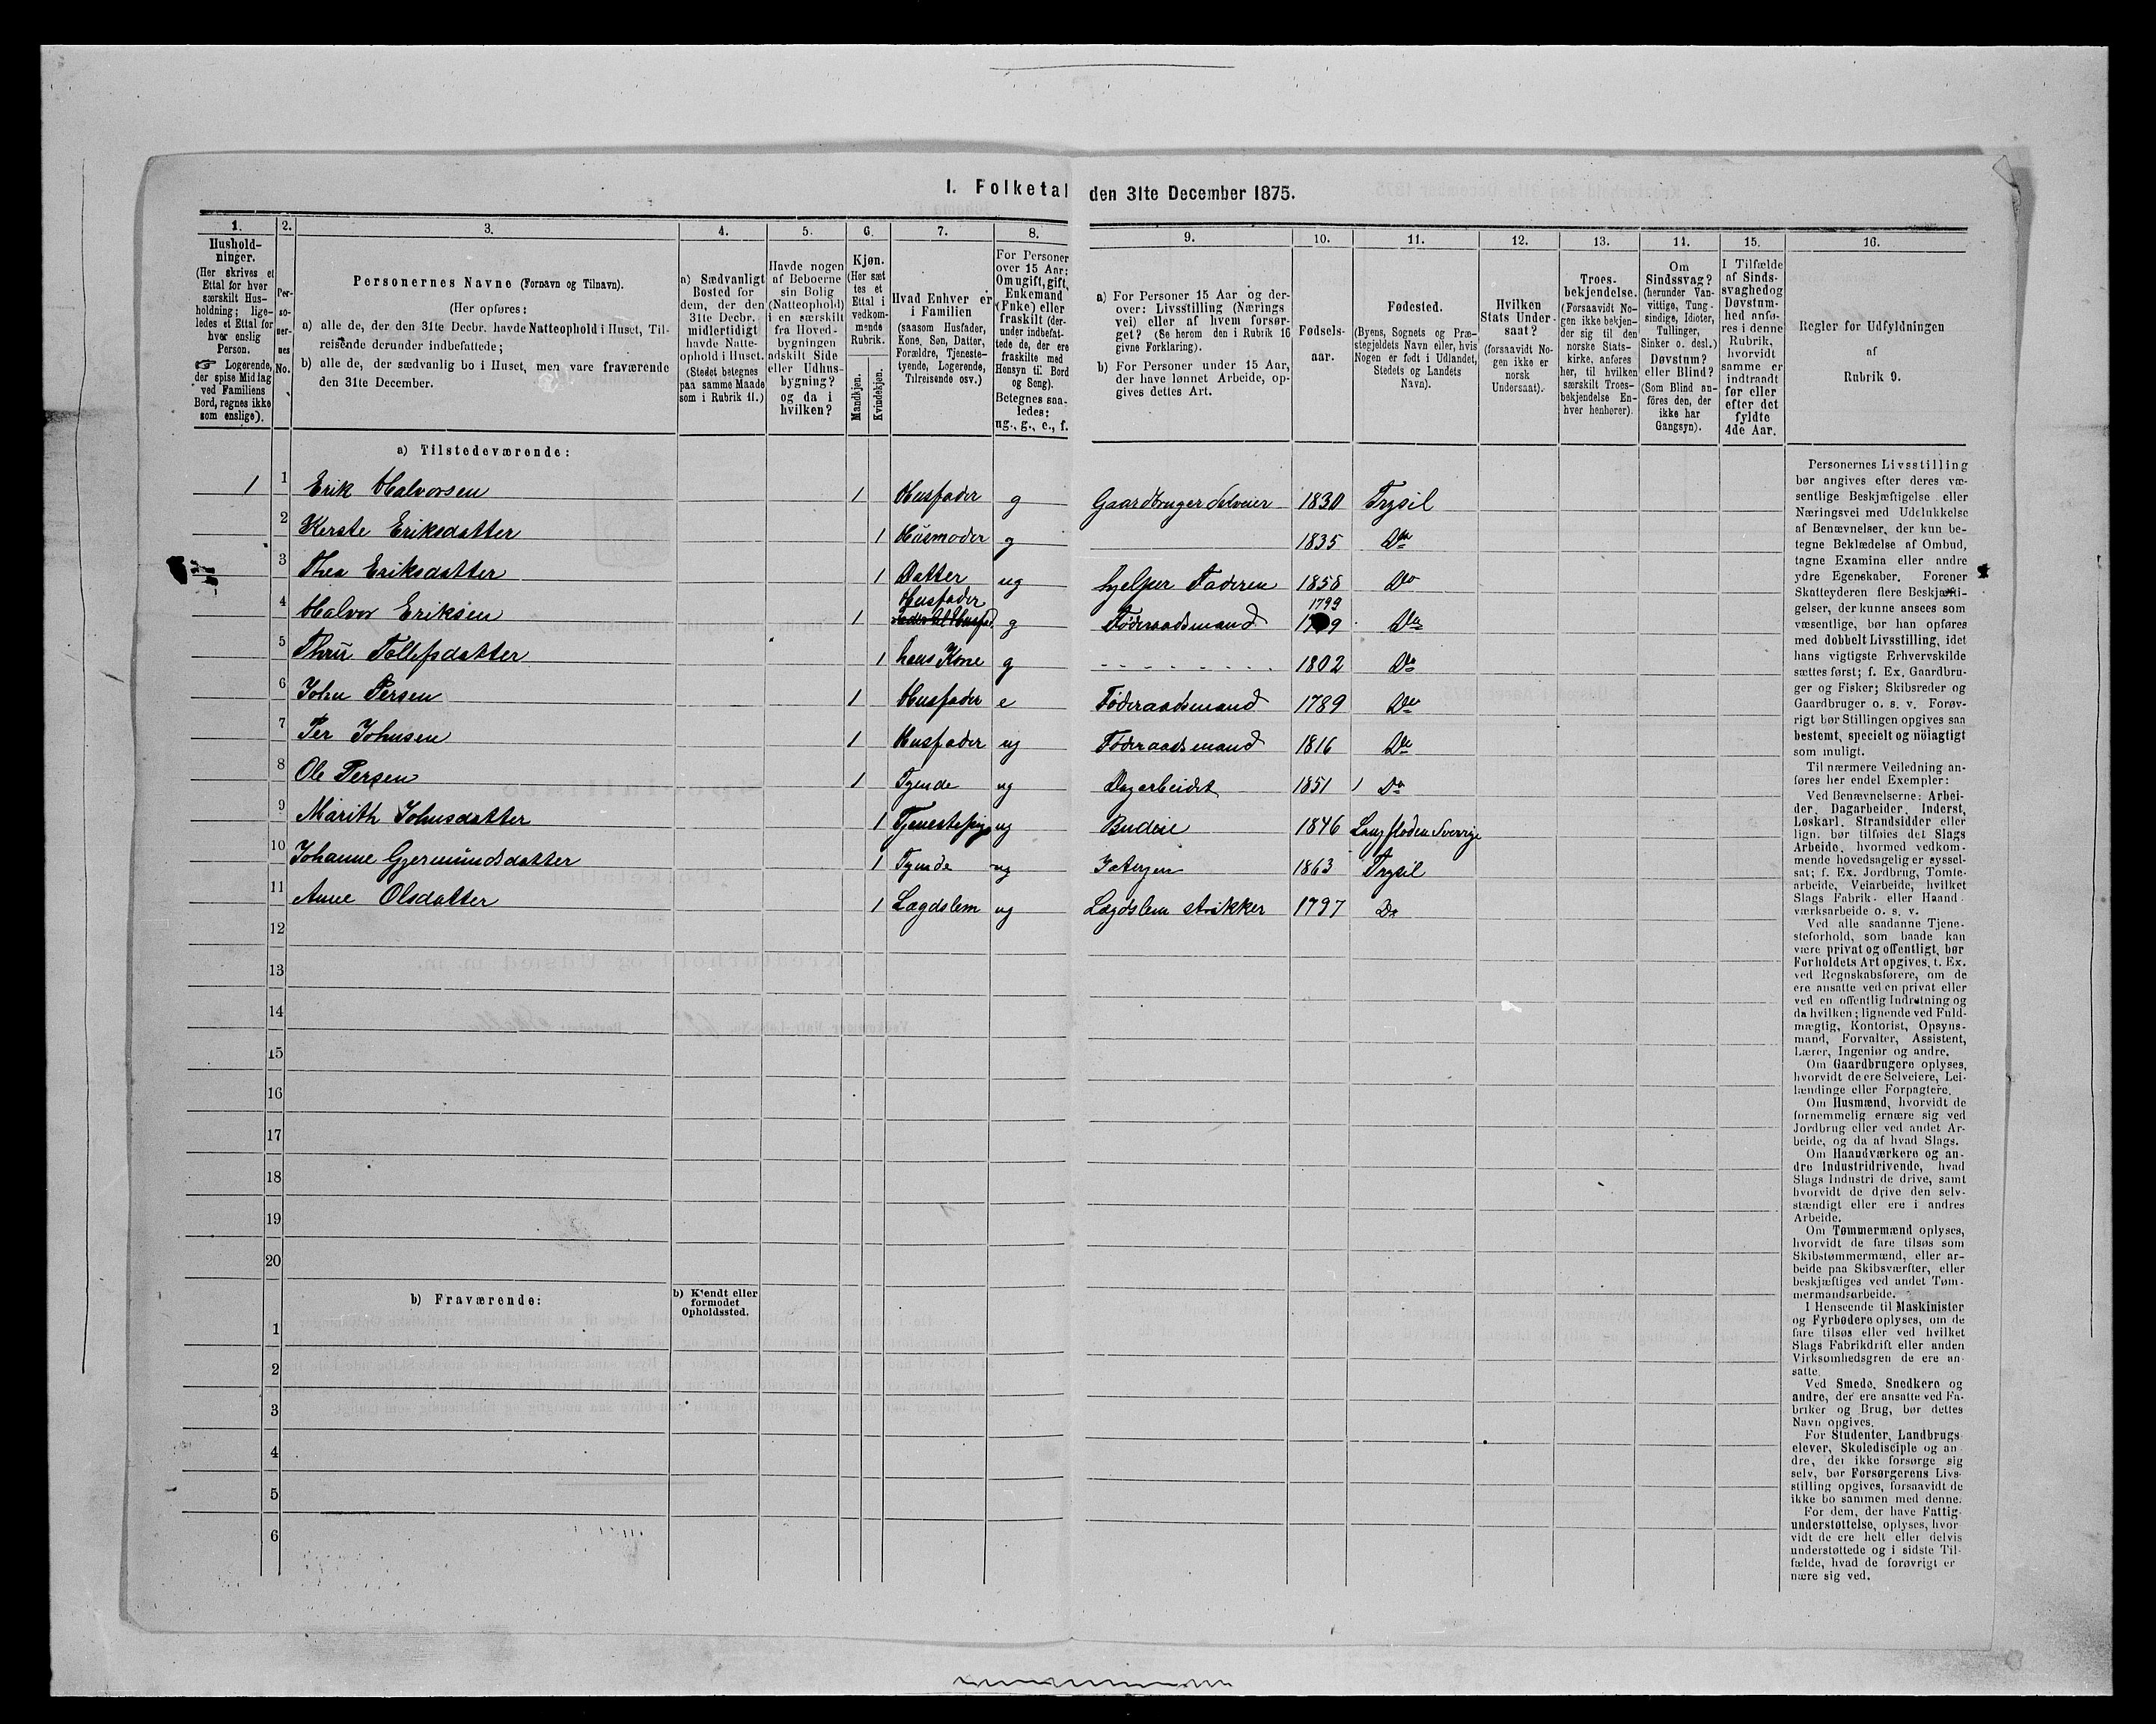 I. Folketal den 31te December 1875.
1. 2. 3. 4. 5. 6. 7. 8. 9. 10. 11. 12. 13. 14. 15. 16.
Hushold-
ninger.
(Her skrives et
Ettal for hver
særskilt Hus-
holdning; lige-
ledes et Ettal for
hver enslig
Person.
☞ Logerende,
der spise Middag
ved Familiens
Bord, regnes ikke
som enslige).
Per-
so-
ner-
nes
No.
Personernes Navne (Fornavn og Tilnavn).
(Her opføres:
a) alle de, der den 31te Decbr. havde Natteophold i Huset, Til-
reisende derunder indbefattede;
b) alle de, der sædvanlig bo i Huset, men vare fraværende
den 31te December.
a) Sædvanligt
Bosted for
dem, der den
31te Decbr.
midlertidigt
havde Natte-
ophold i Huset.
(Stedet betegnes
paa samme Maade
som i Rubrik 11.)
Havde nogen
af Beboerne
sin Bolig
(Natteophold)
i en særskilt
fra Hoved-
bygningen
adskilt Side
eller Udhus-
bygning?
og da i
hvilken?
Kjøn.
(Her sæt
tes et
Ettal i
vedkom-
mende
Rubrik.
Mandkjøn.
Kvindekjøn.
Hvad Enhver er
i Familien
(saasom Husfader,
Kone, Søn, Datter,
Forældre, Tjeneste-
tyende, Logerende,
Tilreisende osv.)
For Personer
over 15 Aar:
Om ugift, gift,
Enkemand
(Enke) eller
fraskilt (der-
under indbefat-
tede de, der ere
fraskilte med
Hensyn til Bord
og Seng).
Betegnes saa-
ledes:
ug., g., e., f.
a) For Personer 15 Aar og der-
over: Livsstilling (Nærings
vei) eller af hvem forsør-
get? (Se herom den i Rubrik 16
givne Forklaring).
b) For Personer under 15 Aar,
der have lønnet Arbeide, op-
gives dettes Art.
Fødsels-
aar.
Fødested.
(Byens, Sognets og Præ-
stegjeldets Navn eller, hvis
Nogen er født i Udlandet,
Stedets og Landets
Navn).
Hvilken
Stats Under-
saat?
(forsaavidt No-
gen ikke er
norsk
Undersaat).
Troes-
bekjendelse.
(Forsaavidt No-
gen ikke bekjen-
der sig til den
norske Stats-
kirke, anføres
her, til hvilken
særskilt Troes-
bekjendelse En-
hver henhører).
Om
Sindssvag?
(herunder Van-
vittige, Tung-
sindige, Idioter,
Tullinger,
Sinker o. desl.)
Døvstum?
eller Blind?
(Som Blind an-
føres den, der
ikke har
Gangsyn).
I Tilfælde
af Sinds-
svaghed og
Døvstum-
hed anfø-
res i denne
Rubrik,
hvorvidt
samme er
indtraadt
før eller
efter det
fyldte
4de Aar.
Regler for Udfyldningen
af
Rubrik 9.
a) Tilstedeværende:
1 1 Erik Halvorsen 1 Husfader g Gaardbruger Selveier 1830 Trysil
2 Kerste Eriksdatter 1 Husmoder g 1835 Do
3 Thea Eriksdatter 1 Datter ug hjelper Faderen 1858 Do
Husfader 1799
4 Halvor Eriksen 1 g Føderaadsmand Do
5 Tollefsdatter 1 hans Kone g 1802 Do
6 John Persen 1 Husfader e Føderaadsmand 1789 Do
7 Per Johnsen 1 Husfader ug Føderaadsmand 1816 Do
8 Ole Persen 1 Tyende ug Dagarbeidet 1851 Do
9 Marith Johnsdatter 1 Tjenestepige ug Budeie 1846 Langfloden Sverrige
10 Johanne Gjermundsdatter 1 Tyende ug 1863 Trysil
11 Anne Olsdatter 1 Lægdslem ug Lægdslem strikker 1797 Do
12
13
14
15
16
17
18
19
20
b) Fraværende:
b) Kjendt eller
formodet
Opholdssted.
1
2
3
4
5
6
Personernes Livsstilling
bør angives efter deres væ-
sentlige Beskjæftigelse eller
Næringsvei med Udelukkelse
af Benævnelser, der kun be-
tegne Beklædelse af Ombud,
tagne Examina eller andre
ydre Egenskaber. Forener
Skatteyderen flere Beskjæfti-
gelser, der kunne ansees som
væsentlige, bør han opføres
med dobbelt Livsstilling, idet
hans vigtigste Erhvervskilde
sættes først; f. Ex. Gaardbru-
ger og Fisker; Skibsreder og
Gaardbruger o. s. v. Forøv-
rigt bør Stillingen opgives saa
bestemt, specielt og nöiagtigt
som muligt.
Til nærmere Veiledning an-
føres her endel Exempler:
Ved Benævnelserne: Arbei-
der, Dagarbeider, Inderst,
Løskarl, Strandsidder eller
lign. bør tilføies det Slags
Arbeide, hvormed vedkom-
mende hovedsagelig er syssel-
sat; f. Ex. Jordbrug, Tomte-
arbeide, Veiarbeide, hvilket
Slags Fabrik- eller Haand-
værksarbeide o. s. v.
Ved alle saadanne Tjene-
steforhold, som baade kan
være privat og offentligt, bør
Forholdets Art opgives, t. Ex.
ved Regnskabsførere, om de
ere ansatte ved en privat eller
ved en offentlig Indretning og
da hvilken; lignende ved Fuld-
mægtig, Kontorist, Opsyns-
mand, Forvalter, Assistent,
Lærer, Ingeniør og andre.
Om Gaardbrugere oplyses,
hvorvidt de ere Selveiere, Lei-
lændinge eller Forpagtere.
Om Husmænd, hvorvidt de
fornemmelig ernære sig ved
Jordbrug eller ved andet Ar-
beide, og da af hvad Slags.
Om Haandværkere og an-
dre Industridrivende, hvad
Slags Industri de drive, samt
hvorvidt de drive den selv-
stændigt eller ere i andres
Arbeide.
Om Tømmermænd oplyses,
hvorvidt de fare tilsøs som
Skibstømmermænd, eller ar-
beide paa Skibsværfter, eller
beskjæftiges ved andet Tøm-
mermandsarbeide.
I Henseende til Maskinister
og Fyrbødere oplyses, om de
fare tilsøs eller ved hvilket
Slags Fabrikdrift eller anden
Virksomhedsgren de ere an-
satte.
Ved Smede, Snedkere og
andre, der ere ansatte ved Fa-
briker og Brug, bør dettes
Navn opgives.
For Studenter, Landbrugs-
elever, Skoledisciple og an-
dre, der ikke forsørge sig
selv, bør Forsørgerens Livs-
stilling opgives, forsaavidt de
ikke bo sammen med denne.
For dem, der have Fattig-
understøttelse, oplyses, hvor-
vidt de ere helt eller delvis
understøttede og i sidste Til-
fælde, hvad de forøvrigt er-
nære sig ved.